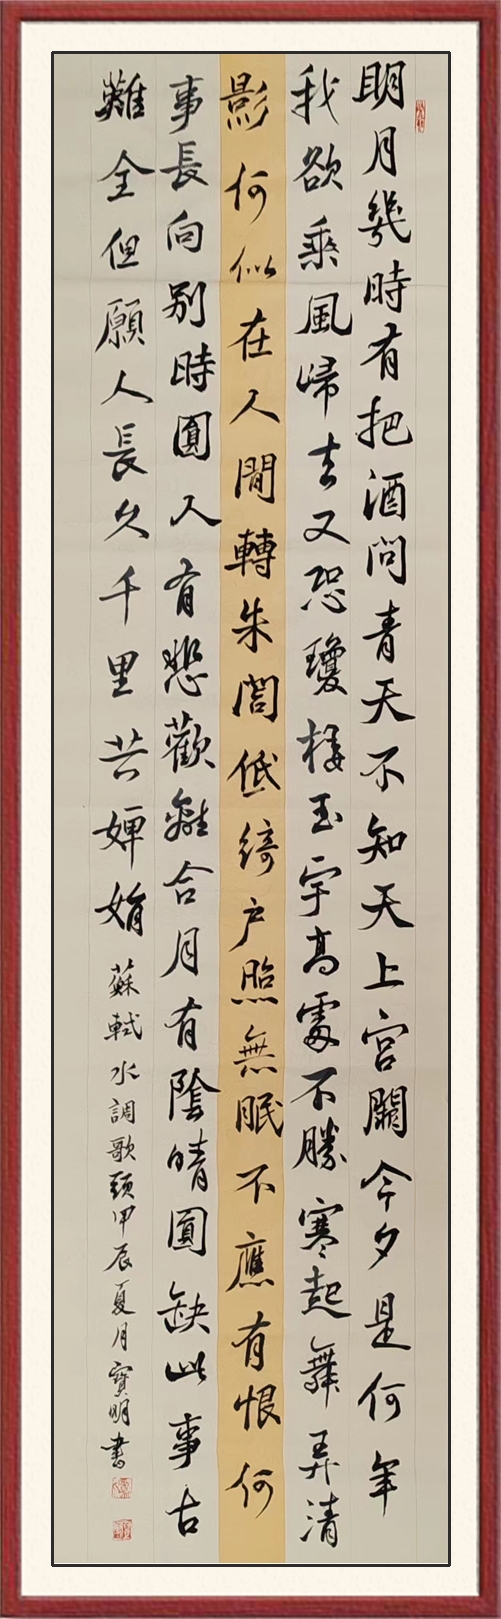 明月幾時有把酒問青天不知天上宮闕今夕是何年
我欲乘風歸去又恐瓊樓玉宇高處不勝寒起舞弄清
影何似在人間轉朱閣低綺户照無眠不應有恨何
事長向别時圓人有悲歡離合月有陰晴圓缺此事古
難全但願人長久千里共嬋娟 蘇軾水調歌頭甲辰夏月寶明書